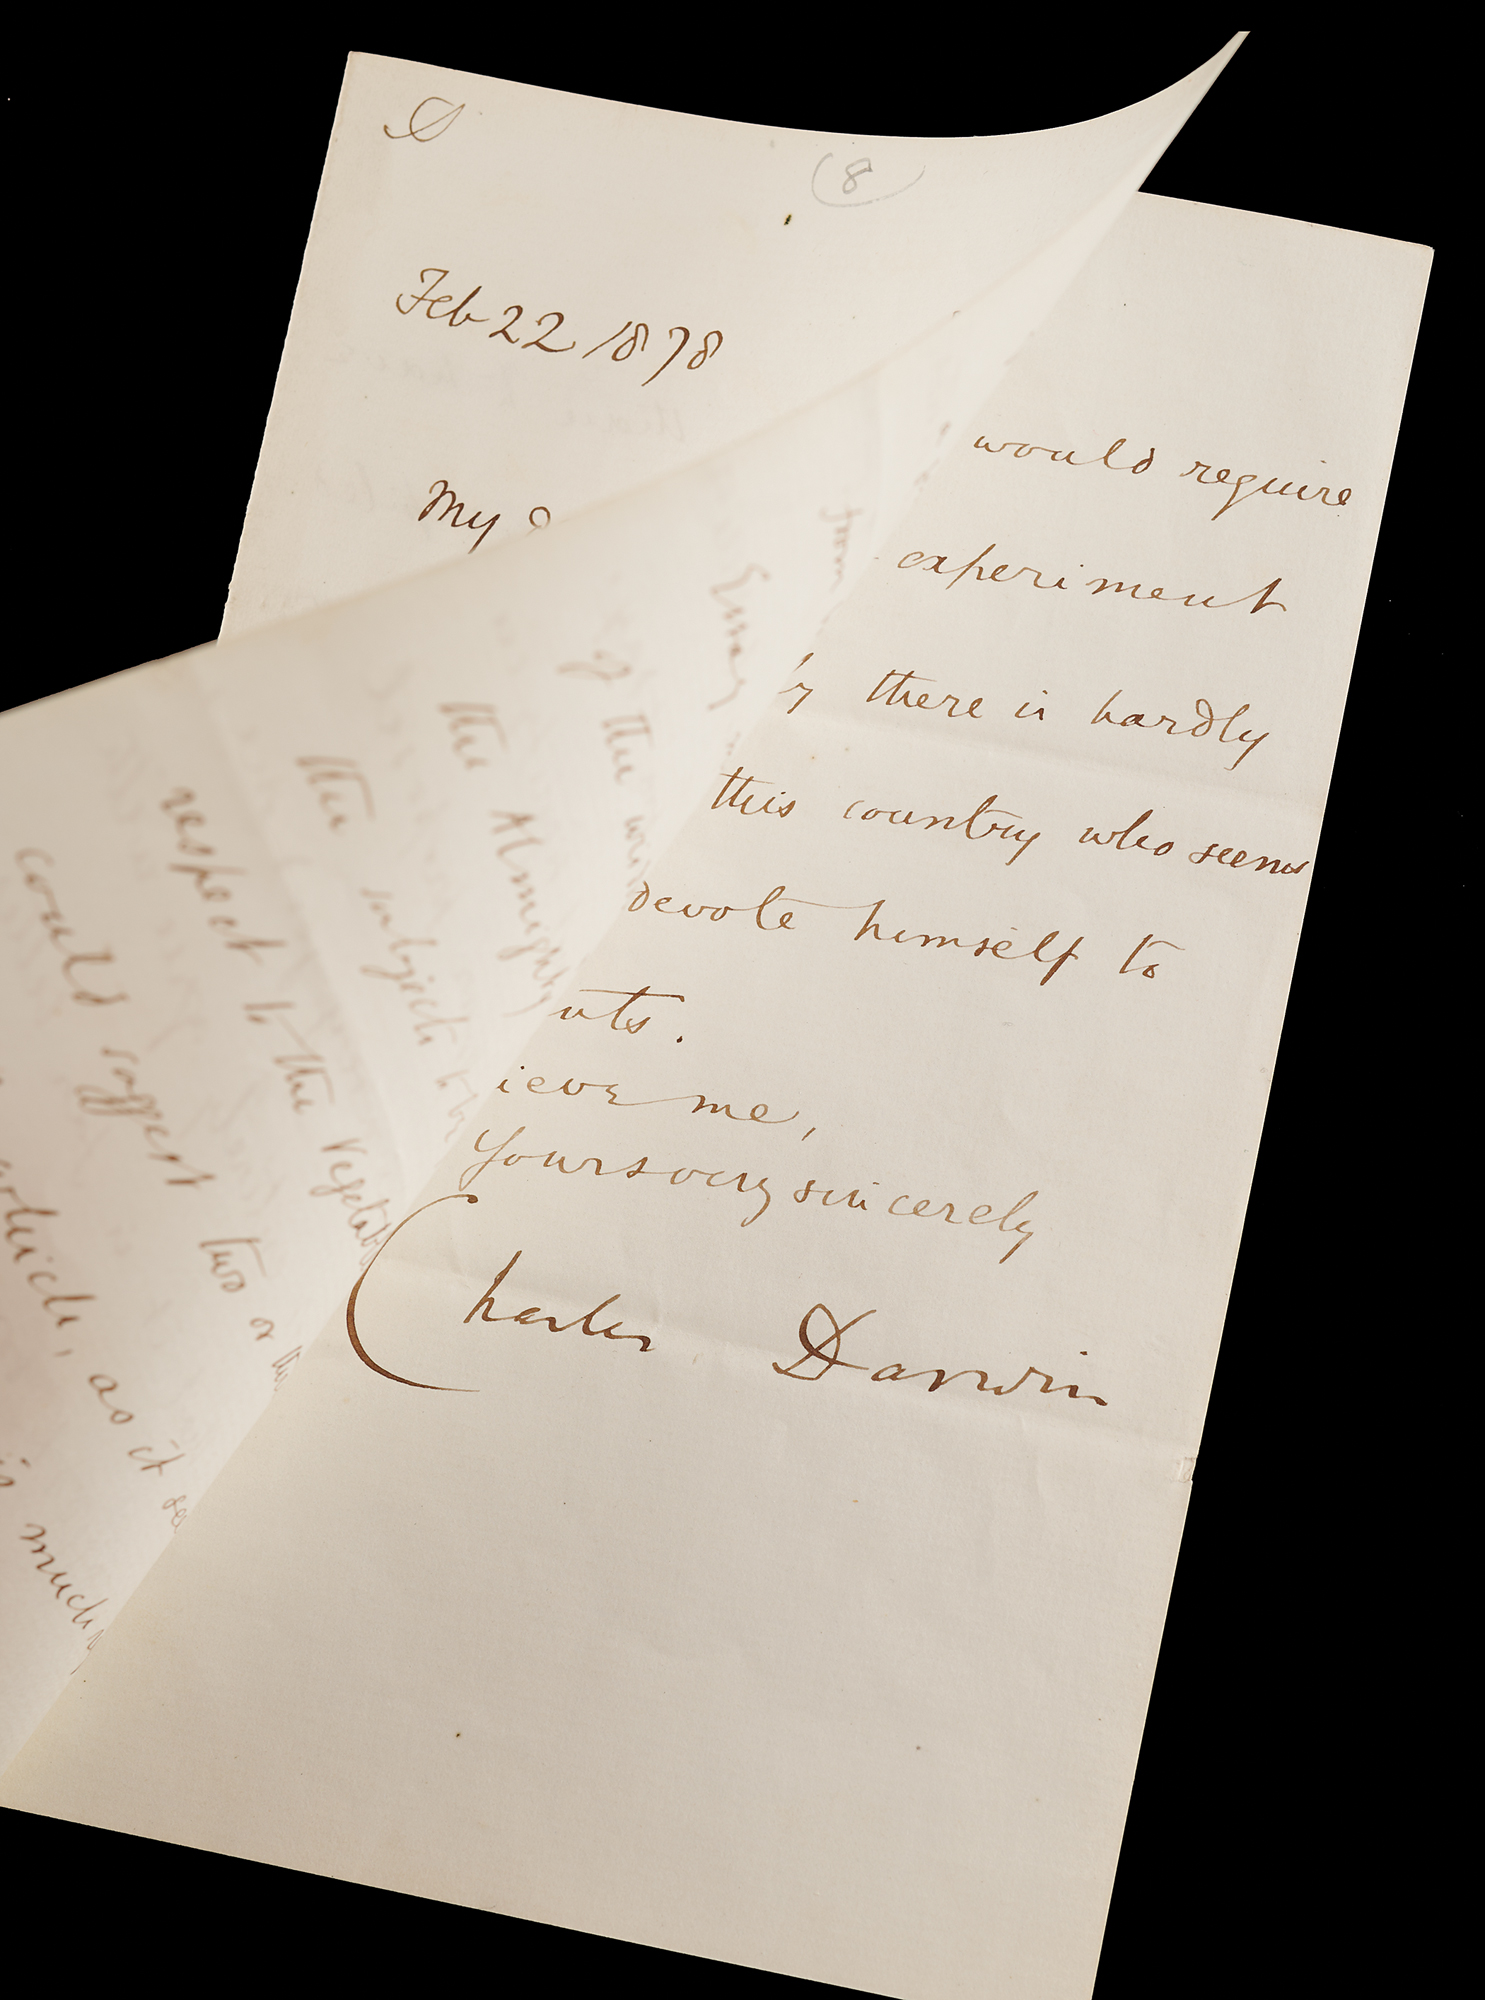 (8)
Feb 22 1878
My
would require
experiment
there is hardly
this country who seems
devote himself to
nts.
ieve me,
Yours very sincerely
Charles Darwin
from
Essay
of the
the Almighty
the subject to be
respect to the Vegetab
could suggest two or
article, as it
is much